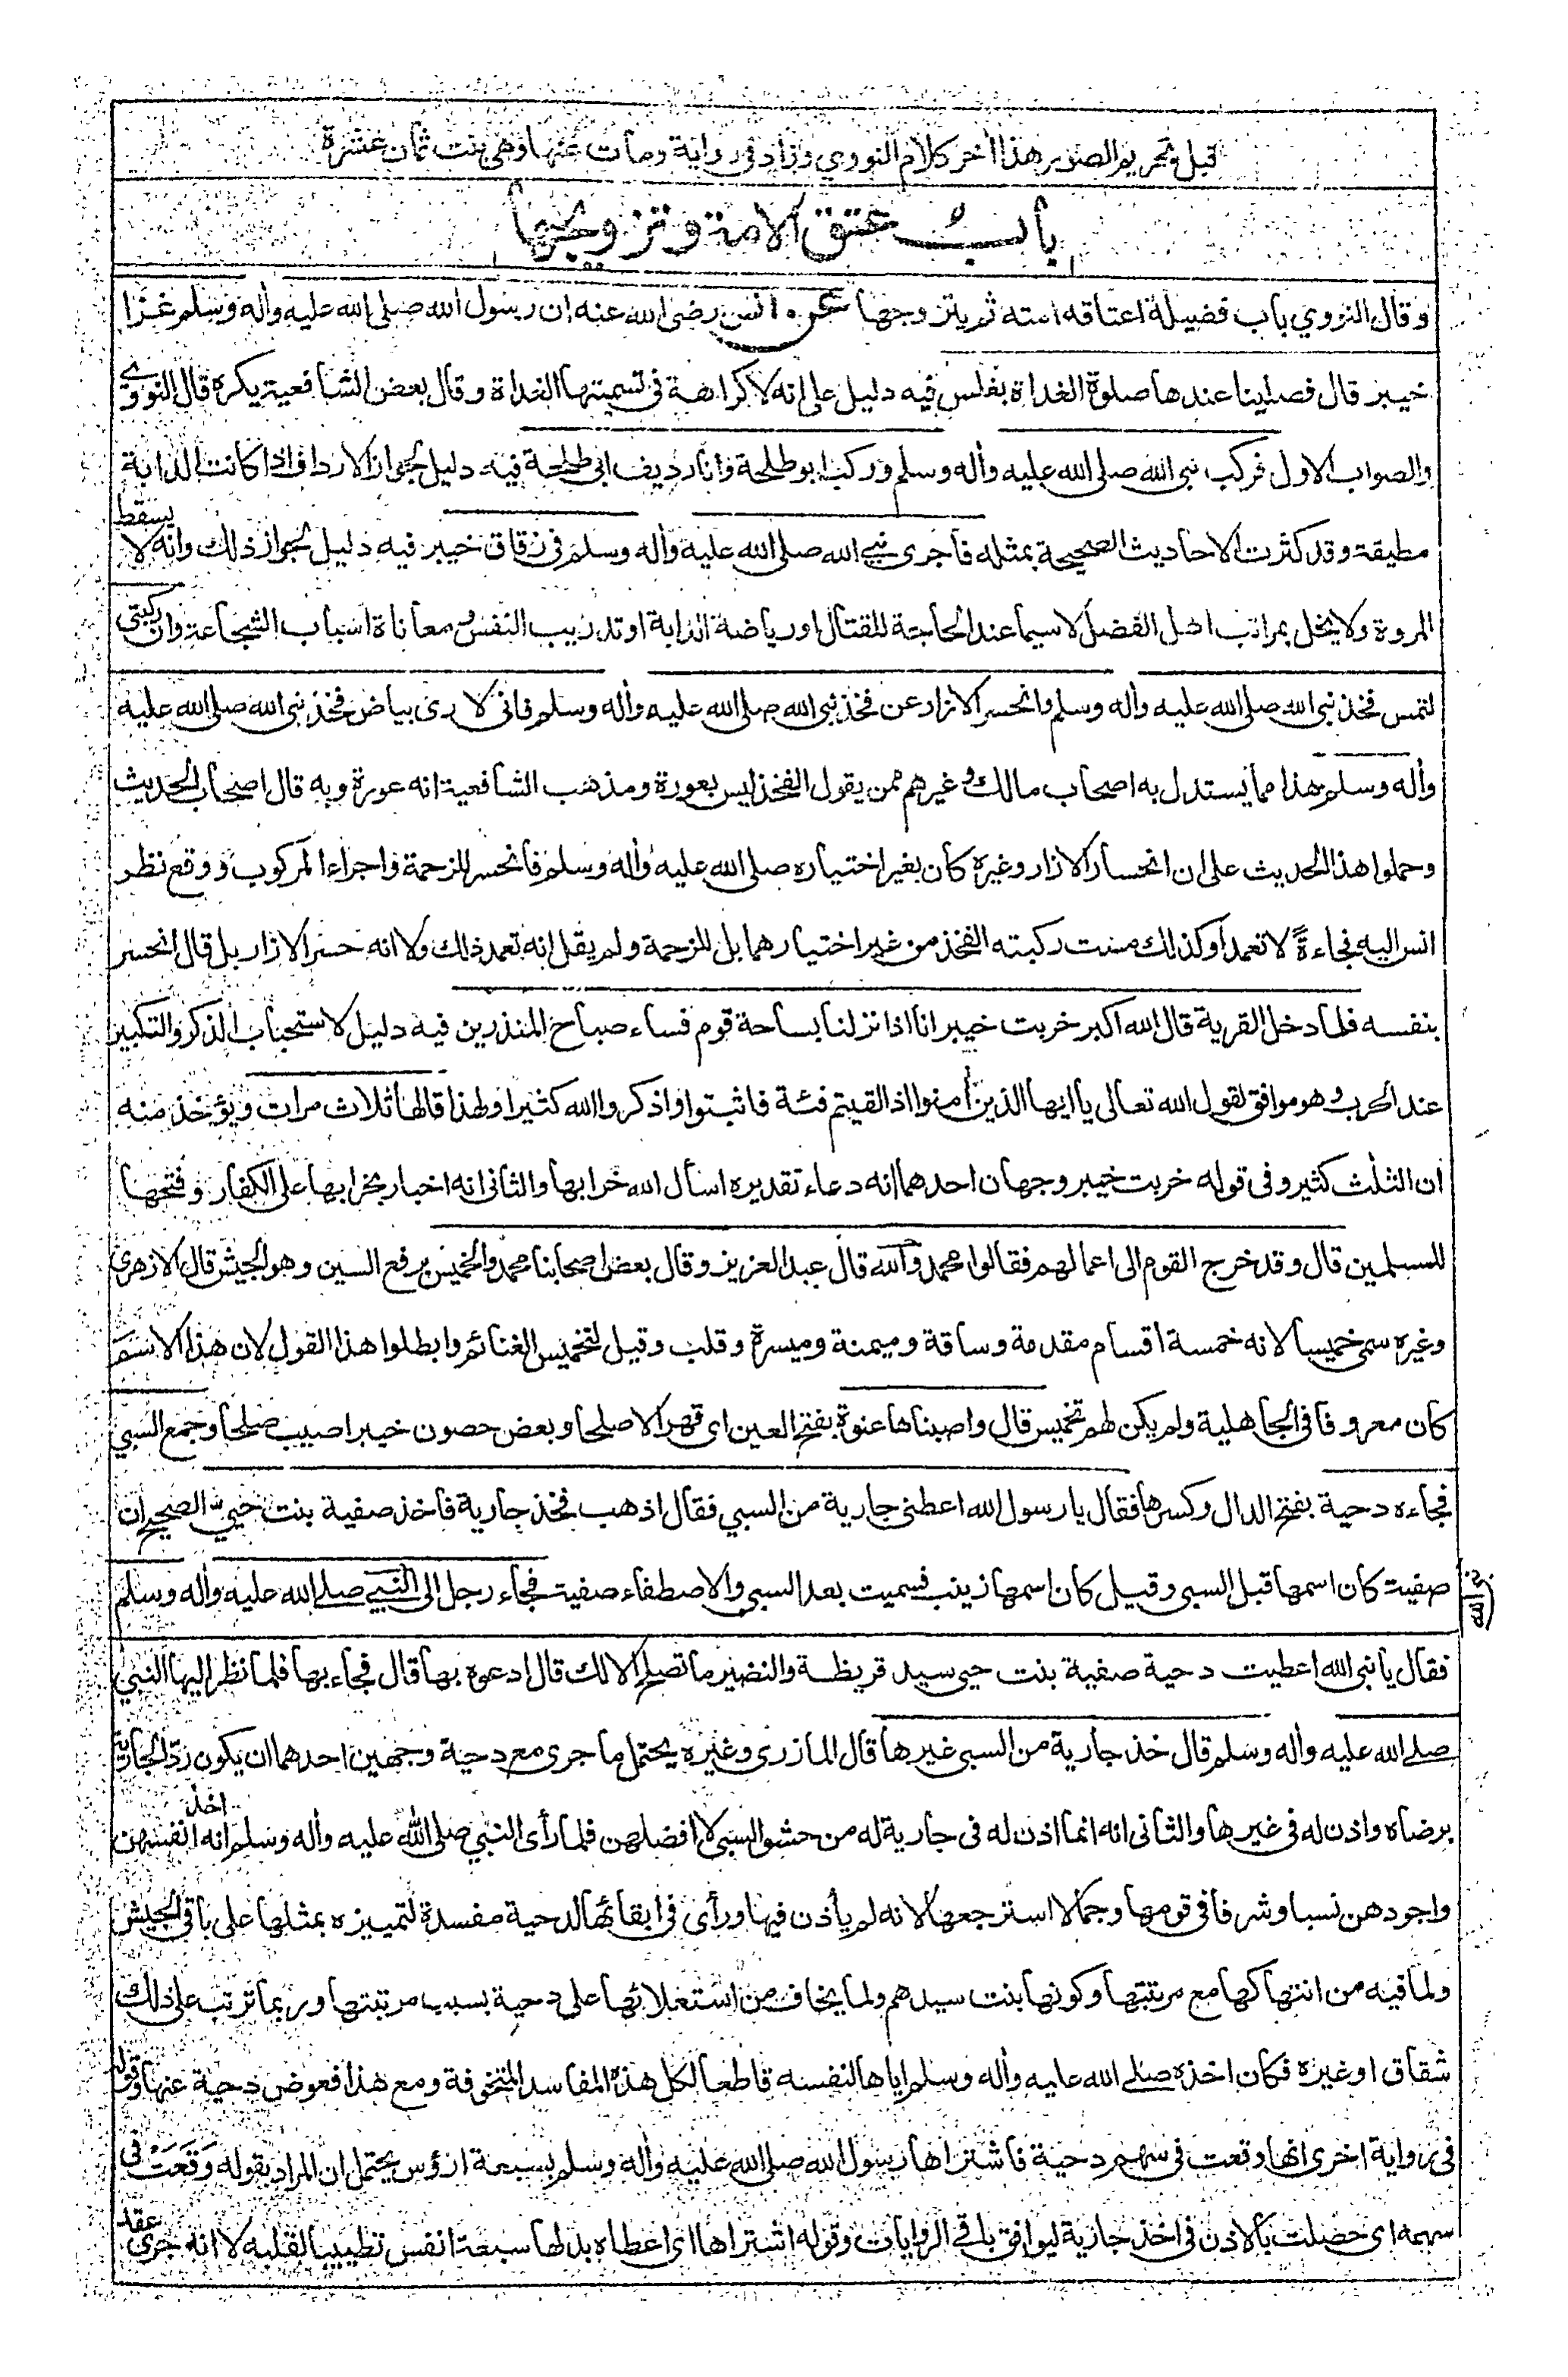 قبل وتحريم الصور هذا أخر كلام النووي وزاد في رواية ومات عنها وهي بنت ثمان عشرة
باب عتق الامة وتزويجها
وقال النووي باب فضيلة اعتاقه امته ثم يتزوجها عن انس رضى الله عنه ان رسول الله صلى الله عليه وأله وسلم غزا
خيبر قال فصلينا عندها صلوة الغداة بغلس فيه دليل على انه لا كراهة فى تسميتها الغداة وقال بعض الشافعية يكره قال النووي
والصواب الاول فركب نبى الله صلى الله عليه وأله وسلم وركب ابو طلحة وانا رديف ابى طلحة فيه دليل لجواز الارداف اذا كانت الدابة
مطيقة وقد كثرت الاحاديث الصحيحة بمثله فأجرى نبي الله صلى الله عليه وأله وسلم فى زقاق خيبر فيه دليل لجواز ذلك وانه لا يسقط
المروة ولا يخل بمراتب اهل الفضل لا سيما عند الحاجة للقتال او رياضة الدابة او تدريب النفس ومعاناة اسباب الشجاعة وان ركبتى
لتمس فخذ نبى الله صلى الله عليه وأله وسلم وانحسر الازار عن فخذ نبى الله صلى الله عليه وأله وسلم فانى لارى بياض فخذ نبى الله صلى الله عليه
وأله وسلم هذا مما يستدل به اصحاب مالك وغيرهم ممن يقول الفخذ ليس بعورة ومذهب الشافعية انه عورة وبه قال اصحاب الحديث
وحملوا هذا الحديث على ان انحسار الازار وغيره كان بغير اختياره صلى الله عليه وأله وسلم فانحسر للزحمة واجراء المركوب ووقع نظر
انس اليه فجاءةً لا تعمدا وكذلك مست ركبته الفخذ من غير اختيارهما بل للزحمة ولم يقل انه تعمد ذلك ولا انه حسر الازار بل قال انحسر
بنفسه فلما دخل القرية قال الله اكبر خربت خيبر انا اذا نزلنا بساحة قوم فساء صباح المنذرين فيه دليل لاستحباب الذكر والتكبير
عند الحرب وهو موافق لقول الله تعالى يا ايها الذين أمنوا اذا لقيتم فئة فاثبتوا واذكروا الله كثيرا ولهذا قالها ثلاث مرات ويؤخذ منه
ان الثلث كثير وفى قوله خربت خيبر وجهان احدهما انه دعاء تقديره اسأل الله خرابها والثانى انه اخبار بخرابها على الكفار وفتحها
للمسلمين قال وقد خرج القوم الى اعمالهم فقالوا محمد والله قال عبد العزيز وقال بعض اصحابنا محمد والخميس برفع السين وهو الجيش قال الازهرى
وغيره سمى خميسا لانه خمسة اقسام مقدمة وساقة وميمنة وميسرة وقلب وقيل لتخميس الغنائم وابطلوا هذا القول لان هذا الاسم
كان معروفا فى الجاهلية ولم يكن لهم تخميس قال واصبناها عنوة بفتح العين اى قهرا لا صلحا وبعض حصون خيبر اصيب صلحا وجمع السبي
فجاءه دحية بفتح الدال وكسرها فقال يا رسول الله اعطنى جارية من السبي فقال اذهب فخذ جارية فاخذ صفية بنت حيي الصحيح ان
صفية كان اسمها قبل السبى وقيل كان اسمها زينب فسميت بعد السبي والاصطفاء صفية فجاء رجل الى النبي صلى الله عليه وأله وسلم
فقال يا نبى الله اعطيت دحية صفية بنت حيى سيد قريظة والنضير ما تصلح الا لك قال ادعوه بها قال فجاء بها فلما نظر اليها النبي
صلے الله عليه وأله وسلم قال خذ جارية من السبى غيرها قال المازرى وغيره يحتمل ما جرى مع دحية وجهين احدهما ان يكون رد الجارية
برضاه واذن له فى غيرها والثانى انه انما اذن له فى جارية له من حشو السبى لا افضلهن فلما رأى النبي صلى الله عليه وأله وسلم انه اخذ انفسهن
واجودهن نسبا وشرفا فى قومها وجمالا استرجعها لانه لم يأذن فيها ورأى فى ابقائها لدحية مفسدة لتميزه بمثلها على باقى الجيش
ولما فيه من انتهاكها مع مرتبتها وكونها بنت سيدهم ولما يخاف من استعلائها على دحية بسبب مرتبتها وربما ترتب على ذلك
شقاق او غيره فكان اخذه صلے الله عليه وأله وسلم اياها لنفسه قاطعا لكل هذه المفاسد المتخوفة ومع هذا فعوض دحية عنها وقوله
فى رواية اخرى انها وقعت فى سهم دحية فاشتراها رسول الله صلى الله عليه وأله وسلم بسبعة ارؤس يحتمل ان المراد بقوله وَقَعَتْ فى
سهمه اى حصلت بالاذن فى اخذ جارية ليوافق باقى الروايات وقوله اشتراها اى اعطاه بدلها سبعة انفس تطييبا لقلبه لا انه جرى عقد